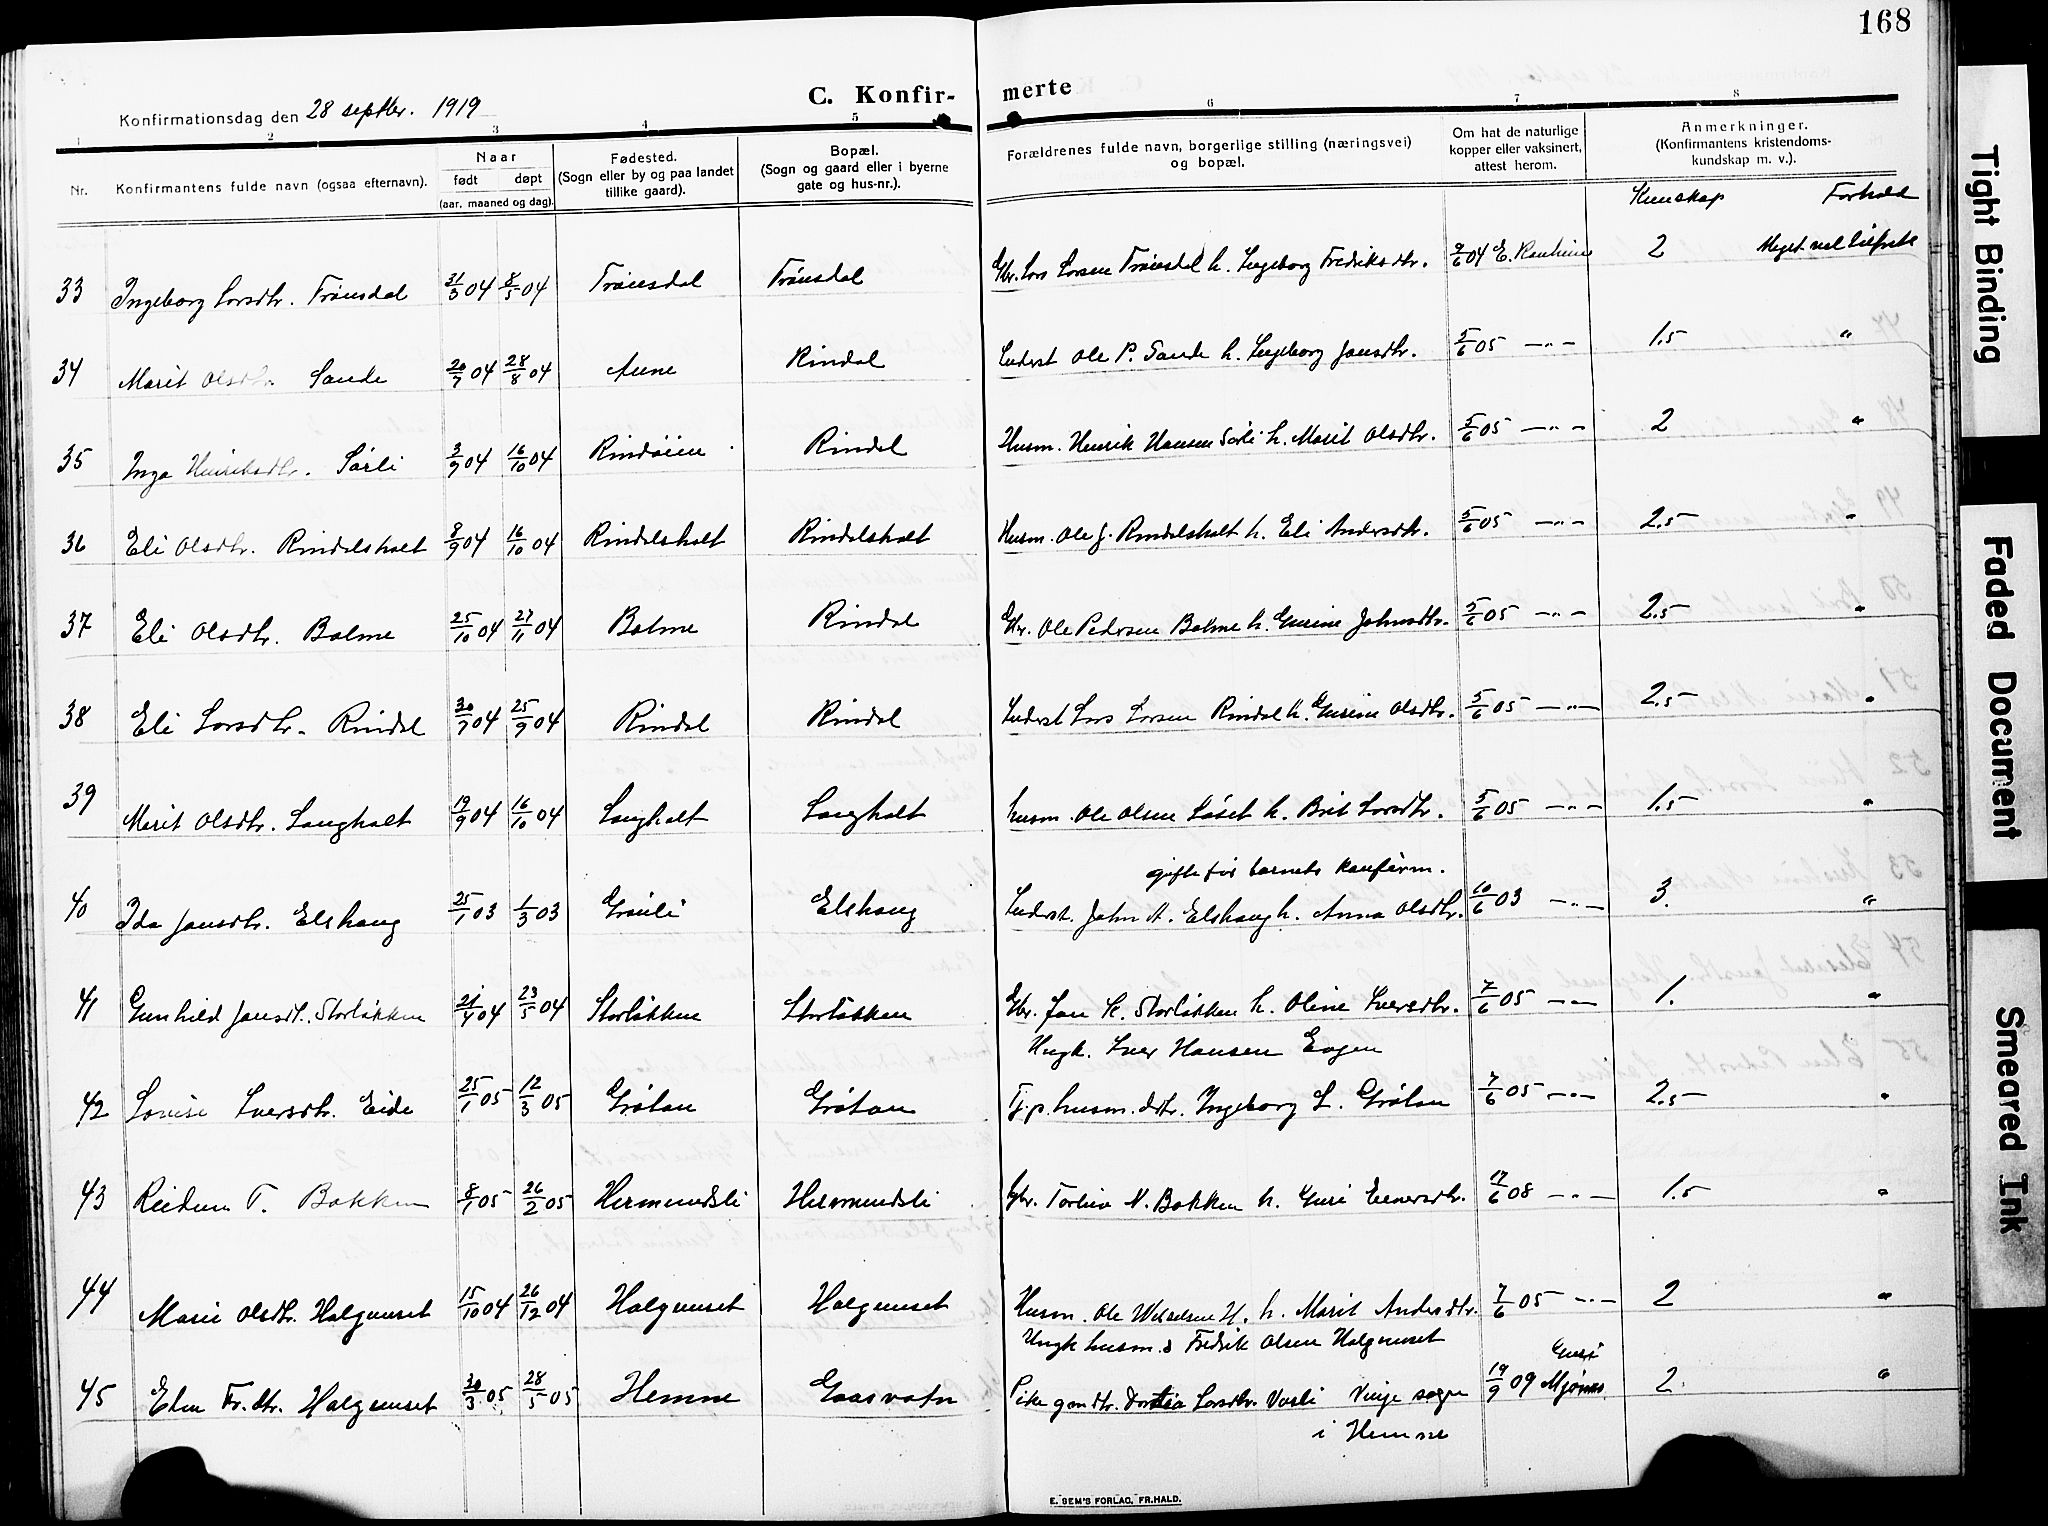 168
C. Konfir- merte
Konfirmationsdag den 28 septbr. 1919
1 2 3 4 5 6 7 8
Nr.
Konfirmantens fulde navn (ogsaa efternavn).
Naar
født døpt
(aar, maaned og dag).
Fødested.
(Sogn eller by og paa landet
tillike gaard).
Bopæl.
(Sogn og gaard eller i byerne
gate og hus-nr.).
Forældrenes fulde navn, borgerlige stilling (næringsvei)
og bopæl.
Om hat de naturlige
kopper eller vaksinert,
attest herom.
Anmerkninger.
(Konfirmantens kristendoms-
kundskap m. v.).
Kunskap Forhold
33 Ingeborg Larsdtr. Trønsdal 31/3 04 8/5 04 Trønsdal Trønsdal Gbr. Lars Larsen Trønsdal h. Ingeborg Fredriksdtr. 9/6 04 E. Ranheim 2 Meget vel tilfreds
34 Marit Olsdtr. Sande 20/7 04 28/8 04 Aune Rindal Inderst Ole P. Sande h. Ingeborg Jonsdtr. 5/6 05 —"— 1.5 "
35 Inga Henriksdtr. Sørli 3/9 04 16/10 04 Rindøien Rindal Husm. Henrik Hansen Sørli h. Marit Olsdtr. 5/6 05 —"— 2 "
36 Eli Olsdtr. Rindalsholt 8/9 04 16/10 04 Rindalsholt Rindalsholt Husm. Ole J. Rindalsholt h. Eli Andersdtr. 5/6 05 —"— 2.5 "
37 Eli Olsdtr. Bolme 25/10 04 27/11 04 Bolme Rindal Gbr. Ole Pedersen Bolme h. Gurine Johnsdtr. 5/6 05 —"— 2.5 "
38 Eli Larsdtr. Rindal 30/7 04 25/9 04 Rindal Rindal Inderst Lars Larsen Rindal h. Gurine Olsdtr. 5/6 05 —"— 2.5 "
39 Marit Olsdtr. Langholt 19/9 04 16/10 04 Langholt Langholt husm. Ole Olsen Løset h. Brit Larsdtr. 5/6 05 —"— 1.5 "
gifte før barnets konfirm.
40 Ida Jonsdtr. Elshaug 25/1 03 1/3 03 Grønli Elshaug Inderst. John A. Elshaug h. Anna Olsdtr. 10/6 03 —"— 3. "
41 Gunhild Jonsdt. Storløkken 21/4 04 23/5 04 Storløkken Storløkken Gbr. Jon K. Storløkken h. Oline Iversdtr. 7/6 05 —"— 1. "
Ungk. Iver Hansen Eogen
42 Lovise Iversdtr. Eide 25/1 05 12/3 05 Grøtan Grøtan Tj.p. husm.dtr. Ingeborg L. Grøtan 7/6 05 —"— 2.5 "
43 Reidun T. Bakken 8/1 05 26/2 05 Hermundsli Hermundsli Gbr. Torleiv N. Bakken h. Guri Einersdtr. 17/6 08 —"— 1.5 "
44 Marie Olsdtr. Halgunset 15/10 04 26/12 04 Halgunset Halgunset Husm. Ole H. h. Marit Andersdtr. 7/6 05 —"— 2 "
Ungk husm.s Fredrik Olsen Halgunset
45 Elen Fr.dtr. Halgunset 30/3 05 28/5 05 Hemne Gaasvatn Pike gmdtr. Dortea Larsdtr. Vasli Vinje sogn 19/9 09 Guri Mjønes 2 "
i Hemne
E. SEM'S FORLAG, FR.HALD.
Tight Binding
Faded Document
Smeared Ink